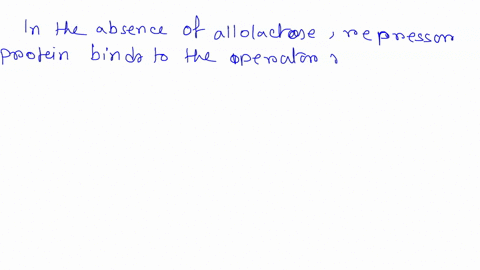 In the absence of allolactose, repressor
protein binds to the operator,